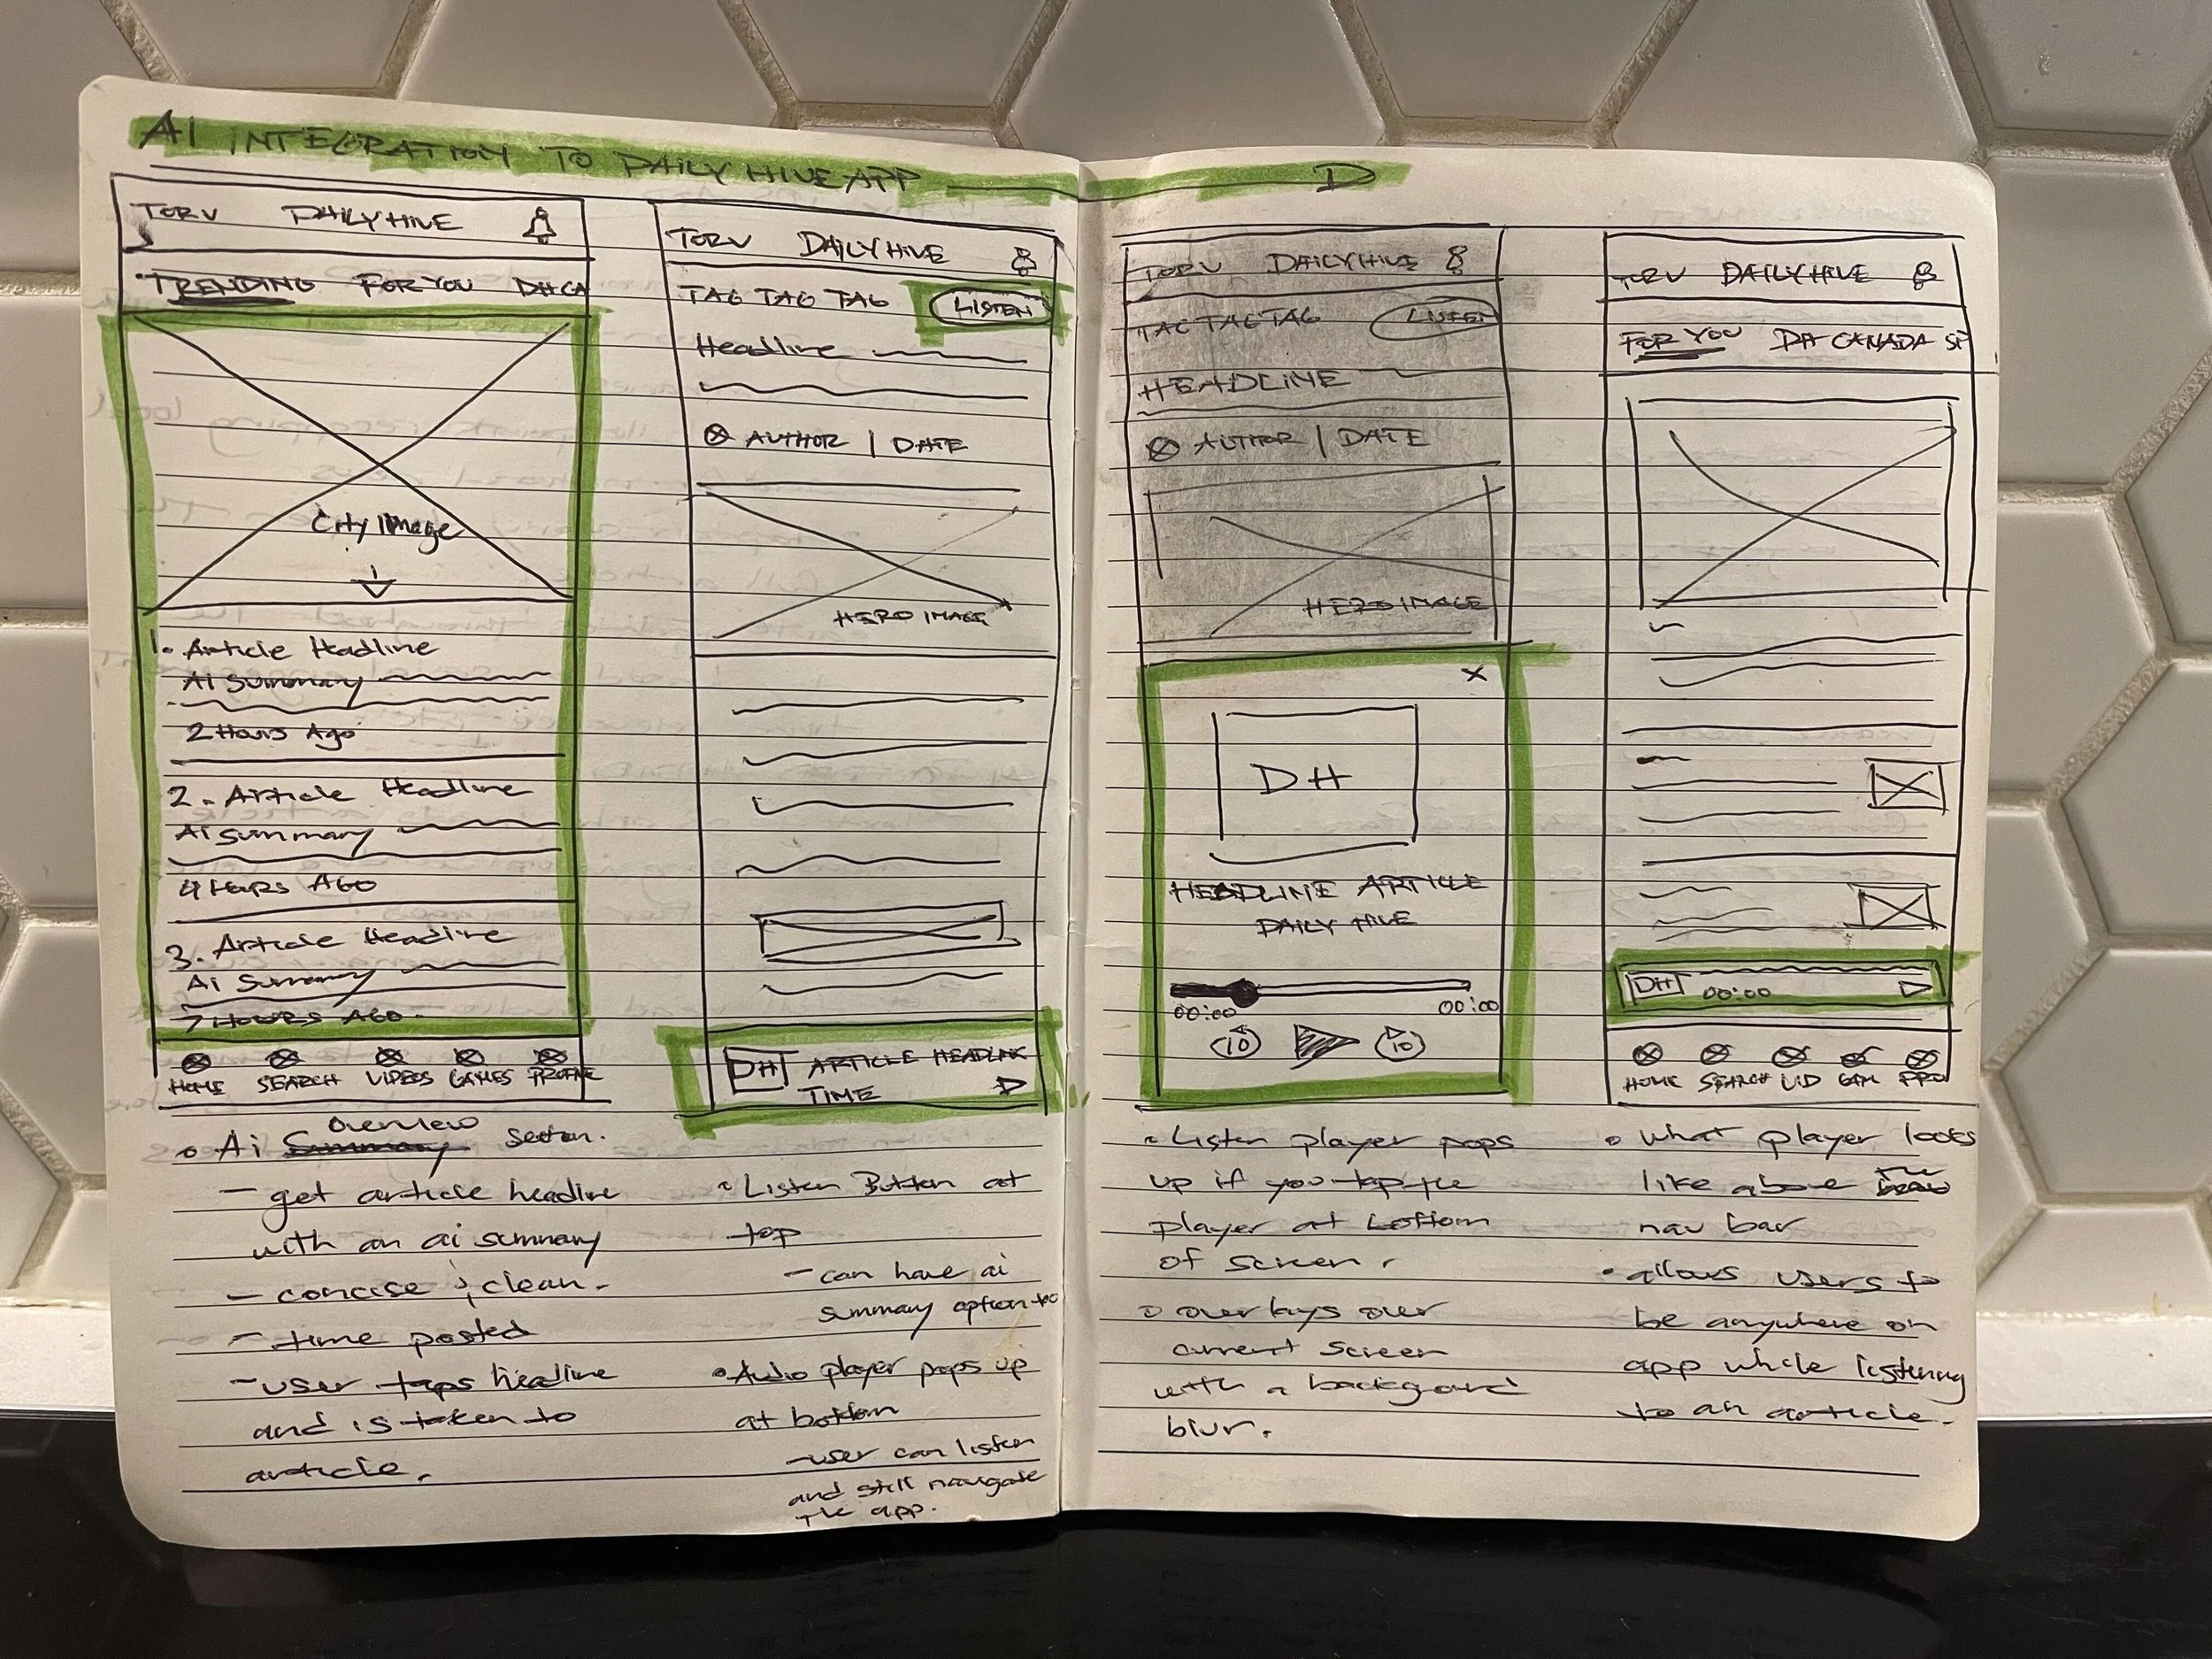 AI INTEGRATION TO DAILY HIVE APP
D
TOR V DAILY HIVE
TRENDING FOR YOU DH CA
City Image
1. Article Headline
Ai Summary
2 Hours Ago
2. Article Headline
Ai Summary
4 Hours AGO
3. Article Headline
Ai Summary
7 HOURS AGO.
HOME SEARCH VIDEOS GAMES PROFILE
Overview
Ai Summary section.
- get article headline
with an ai summary
- concise & clean.
- time posted
- user taps headline
and is taken to
article.
TOR V DAILY HIVE
TAG TAG TAG LISTEN
Headline
AUTHOR | DATE
HERO IMAGE
DH ARTICLE HEADLINE
TIME
Listen Button at
top
- can have ai
summary option too
Audio player pops up
at bottom
- user can listen
and still navigate
the app.
TOR V DAILY HIVE
TAG TAG TAG LISTEN
HEADLINE
AUTHOR | DATE
HERO IMAGE
X
DH
HEADLINE ARTICLE
DAILY HIVE
00:00 00:00
10 10
Listen player pops
up if you tap the
player at bottom
of screen.
overlays over
current screen
with a background
blur.
TOR V DAILY HIVE
FOR YOU DH CANADA SP
DH
00:00
HOME SEARCH VID GAM PRO
what player looks
like above the
nav bar
allows users to
be anywhere on
app while listening
to an article.